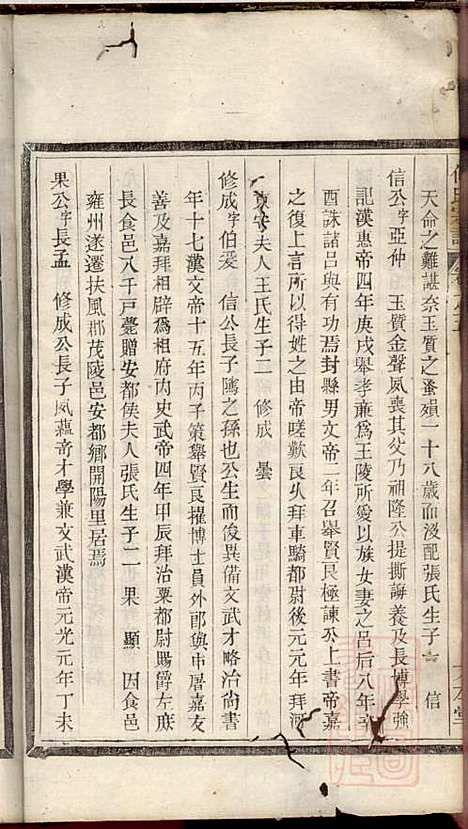 天命之難諶奈玉質之蚤殞一十八歲而沒配張氏生子 信
信公字亞仲 玉質金聲夙喪其父乃祖隆公提撕訓養及長博學強
記漢惠帝四年庚戌舉孝廉為王陵所愛以族女妻之呂后八年辛
酉誅諸呂與有功焉封縣男文帝二年召舉賢良極諫公上書帝嘉
之復上言所以得姓之由帝嗟歎良久拜車騎都尉後元元年拜河
東守夫人王氏生子二 修成 曇
修成字伯爰 信公長子隲之孫也公生而俊異備文武才略治尚書
年十七漢文帝十五年丙子策舉賢良擢博士員外郎與申屠嘉友
善及嘉拜相辟為相府內史武帝四年甲辰拜治粟都尉賜爵左庶
長食邑八千戶薨贈安都侯夫人張氏生子二 果 顯 因食邑
雍州遂遷扶風郡茂陵邑安都鄉開陽里居焉
果公字長孟 修成公長子夙蘊帝才學兼文武漢帝元光元年丁未